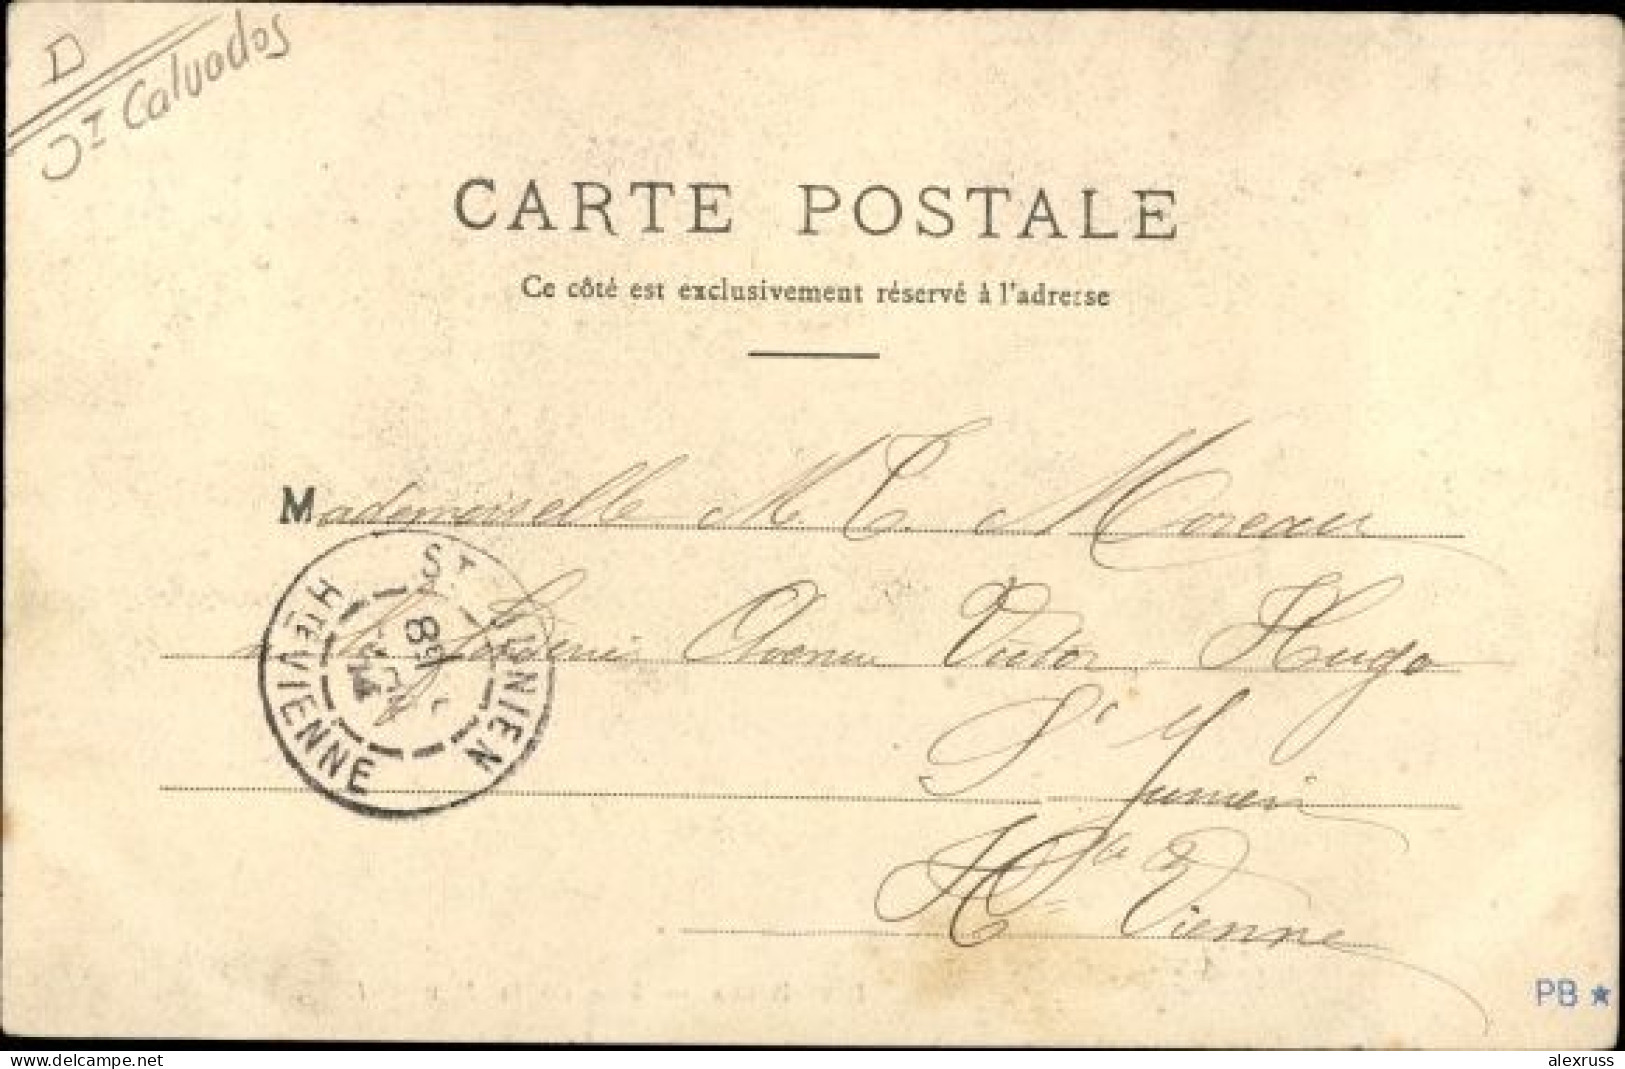 D
Calvados
CARTE POSTALE
Ce côté est exclusivement réservé à l'adresse
Mademoiselle M. C. Moreau
Avenue Victor - Hugo
St Junien
Hte Vienne
ST JUNIEN
HTE VIENNE
PB ★
alexruss